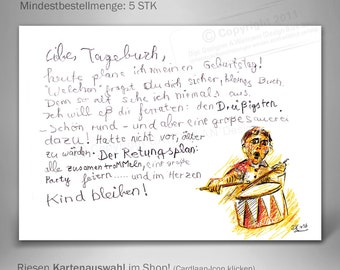 Mindestbestellmenge: 5 STK
Copyright 2011
Liebes Tagebuch,
heute plane ich meinen Geburtstag!
Welchen? fragst Du dich sicher, kleines Buch.
Denn so alt sehe ich niemals aus.
Ich will es dir verraten: den Dreißigsten.
- Schön rund - und aber eine große Sauerei
dazu! Hatte nicht vor, älter
zu werden. Der Rettungsplan:
alle zusamentrommeln, eine große
Party feiern...... und im Herzen
Kind bleiben!
Riesen Kartenauswahl im Shop! (Cardlaan-Icon klicken)